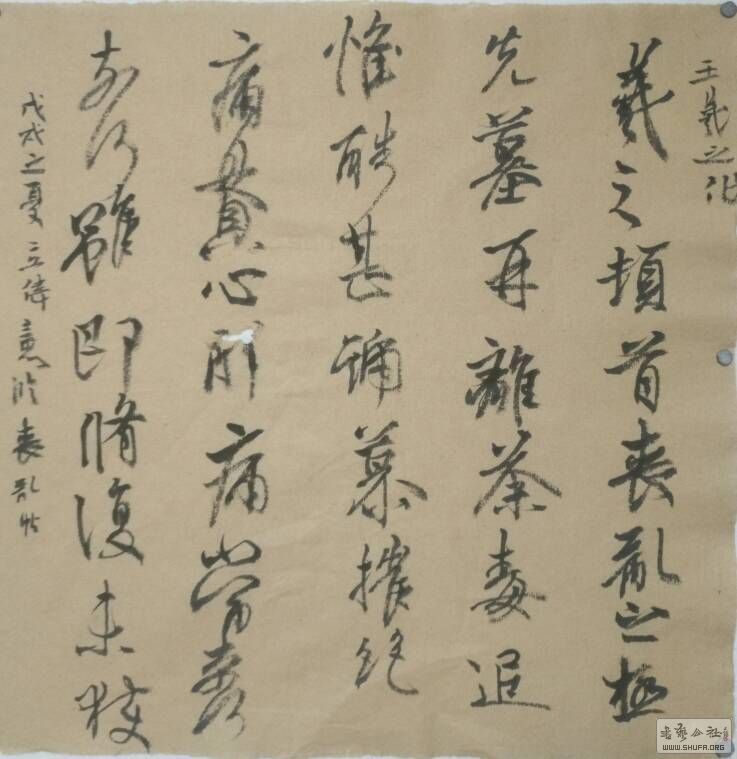 王羲之作
羲之頓首喪亂之極
先墓再離荼毒追
惟酷甚號慕摧絕
痛貫心肝痛當奈
奈何雖即脩復未獲
戊戌之夏立偉意臨喪亂帖
書藝公社
WWW.SHUFA.ORG